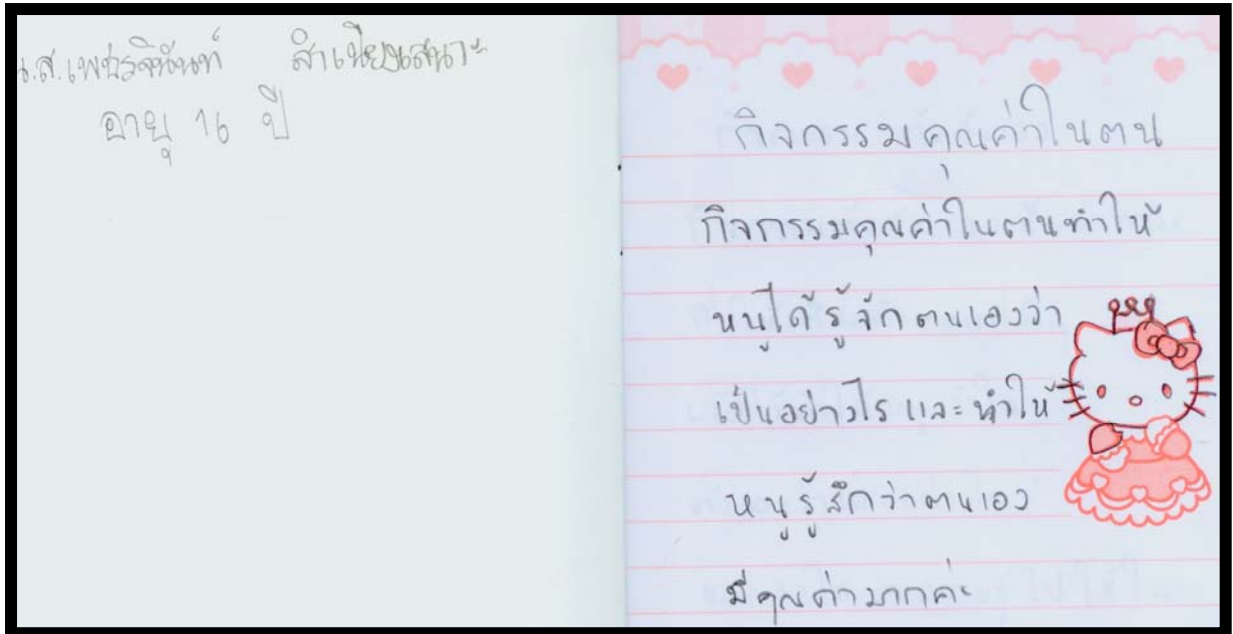 น.ส.เพชรจินันท์ สำเนียงเสนาะ
อายุ 16 ปี
กิจกรรมคุณค่าในตน
กิจกรรมคุณค่าในตนทำให้
หนูได้รู้จักตนเองว่า
เป็นอย่างไร และทำให้
หนูรู้สึกว่าตนเอง
มีคุณค่ามากค่ะ